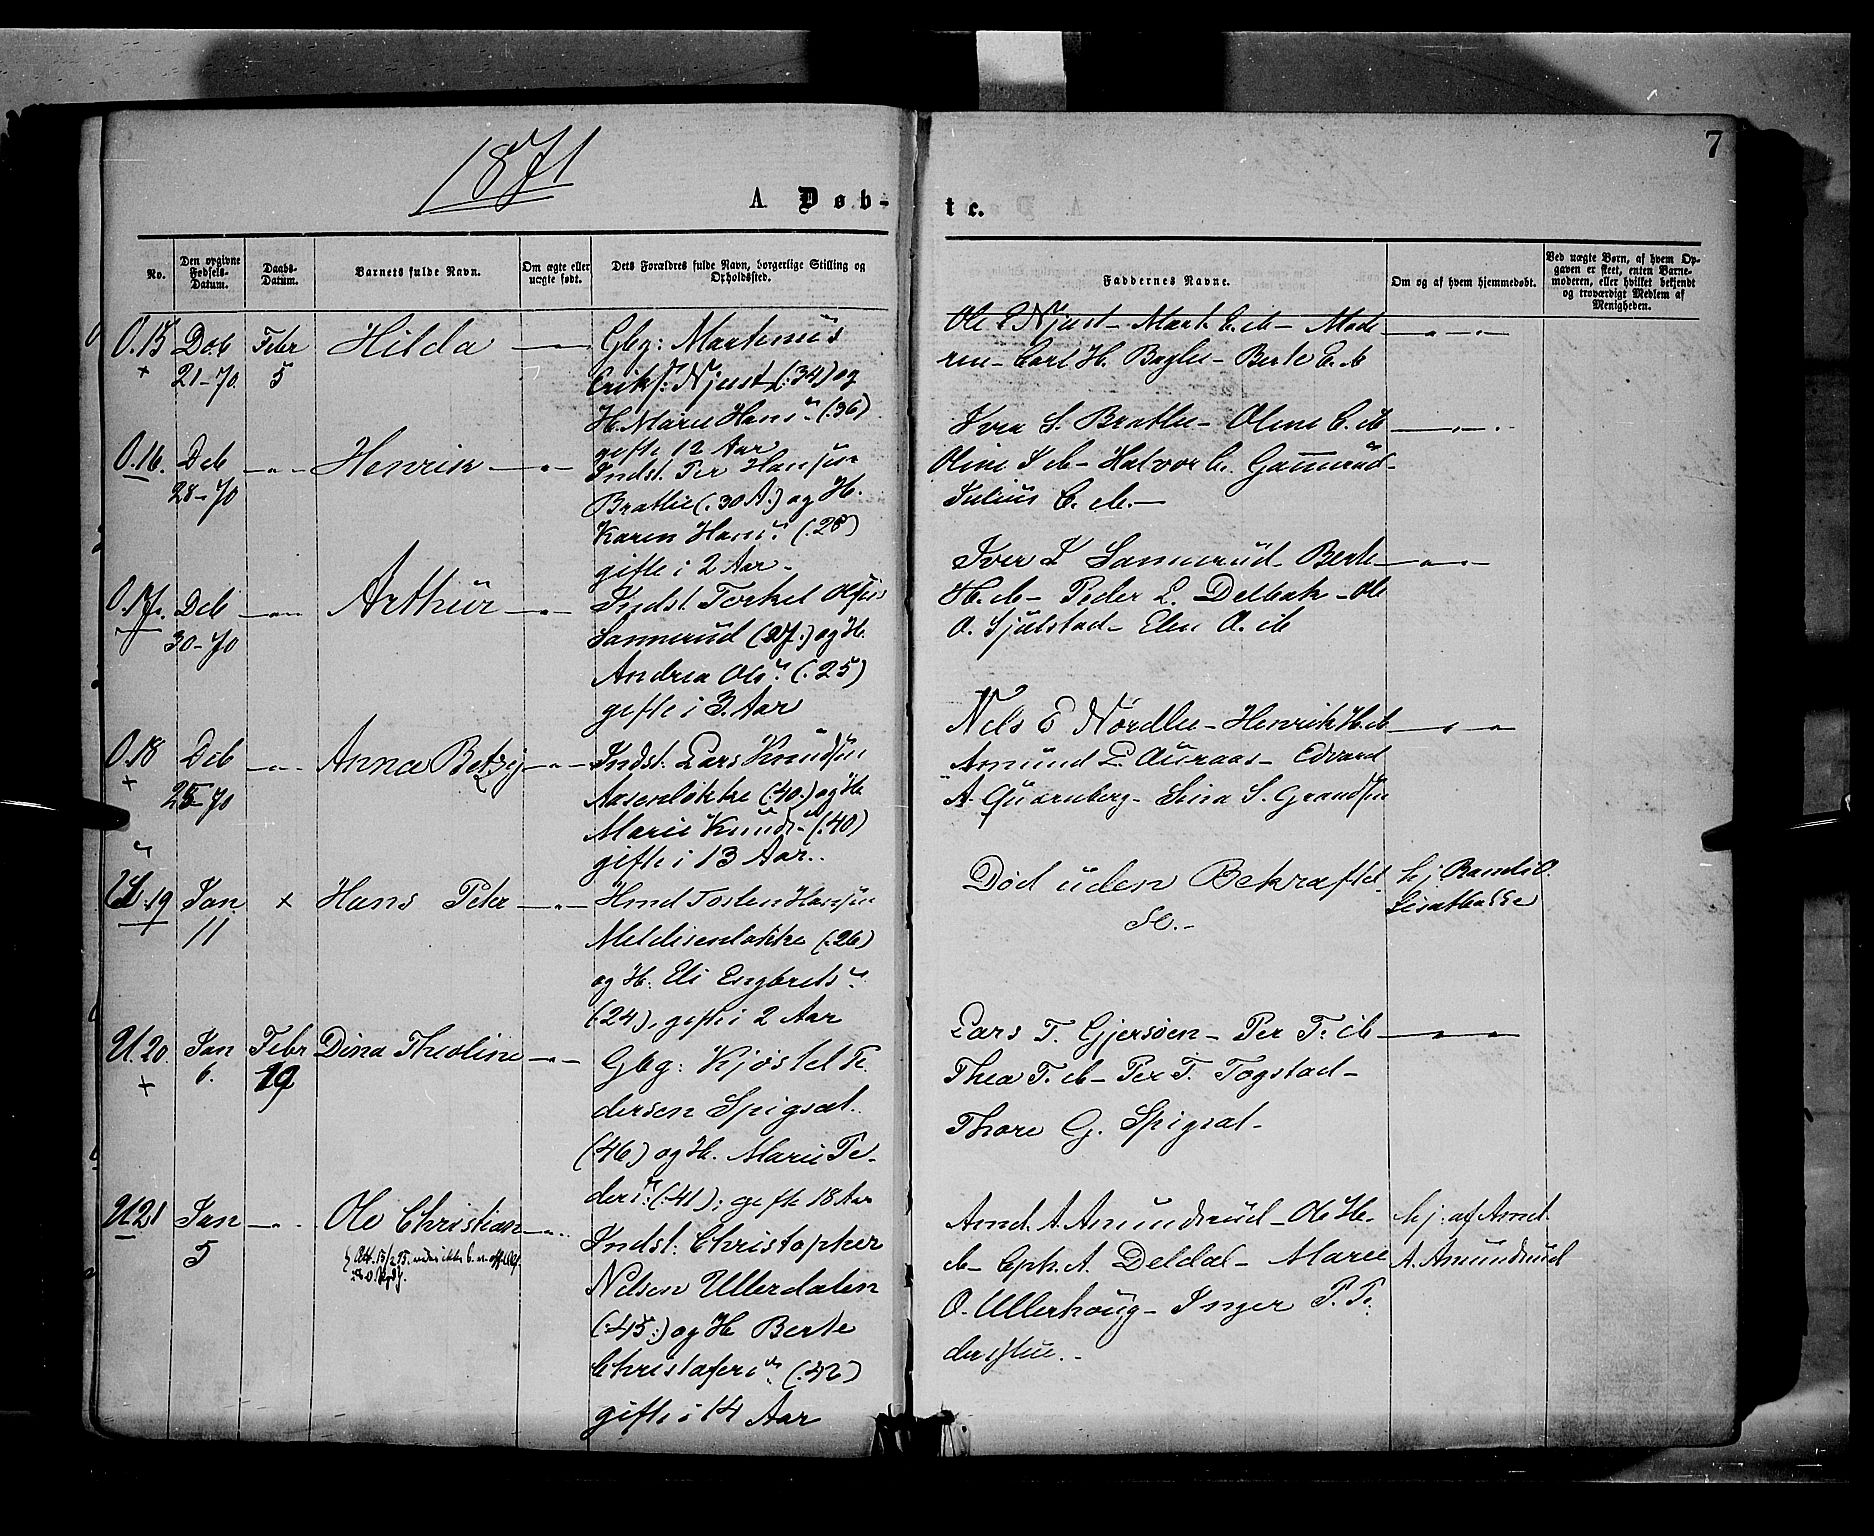 1871
7
A Døb-
te.
No.
Den opgivne Fødsels-Datum.
Daabs-Datum.
Barnets fulde Navn.
Om ægte eller uægte født.
Dets Forældres fulde Navn, borgerlige Stilling og Opholdssted.
Faddernes Navne.
Om og af hvem hjemmedøbt.
Ved uægte Børn, af hvem Opgaven er skeet, enten Barnemoderen, eller hvilket bekjendt og troværdigt Medlem af Menigheden.
O. 15 Deb 21-70 Febr 5 Hilda
Gbg: Martinius
Eriks: Njust (:34) og
H. Marie Hans (:36)
gifte 12 Aar
Ole E Njust - Mart. E. ib - Mode
ren - Carl H. Baglie - Berte E. ib
O. 16. Deb 28-70 Henrik
Indst. Per Hansen
Bratlie (:30 A:) og H.
Karen Hans (:28)
gifte i 2 Aar -
Iver S. Bratlie - Oline E. ib
Oline I ib - Halvor G. Gammerud -
Julius E. ib. -
O. 17. Deb 30-70 Arthur
Indst Torkel Olsen
Sannerud (27:) og H.
Andrea Ols (:25)
gifte i 3 Aar
Iver I Sannerud - Berte
H. ib - Peder L. Delbak - Ole
O. Sjulstad - Elen O. ib
O. 18 Deb 25-70 Anna Betzy
Indst: Lars Knudsen
Aasenløkke (:40:) og H
Marie Knuds (:40)
gifte i 13 Aar.
Nels E Nordlie - Henrik H. ib
Amund L. Auraas - Edvard
A. Quernberg - Lina S. Grandsen
U. 19 Jan 11 × Hans Peter
Hmd Torsten Hansen
Meldiesenløkke (:26)
og H. Eli Engbrets
(24), gifte i 2 Aar
Død uden Bekræftel
se. -
hj Randi O.
U. 20 Jan 6. Febr 19 Dina Theoline
Gbg: Kjøstel Pe
dersen Spigset
(46) og H. Marie Pe-
ders (:41); gifte 18 Aar
Lars T. Gjersøen - Per T. ib
Thea T. ib - Per T. Togstad -
Thore G. Spigsat -
U 21 Jan 5 Ole Christian
Indst: Christopher
Nelsen Ullerdalen
(:45:) og H Berte
Christofers (:42)
gifte i 14 Aar
Arnd. A. Amundrud - Ole H.
ib - Cph. A. Deldal - Marie
O. Ullerhoug - Inger P. Pe
derstue. -
hj: af Arnd.
A. Amundrud